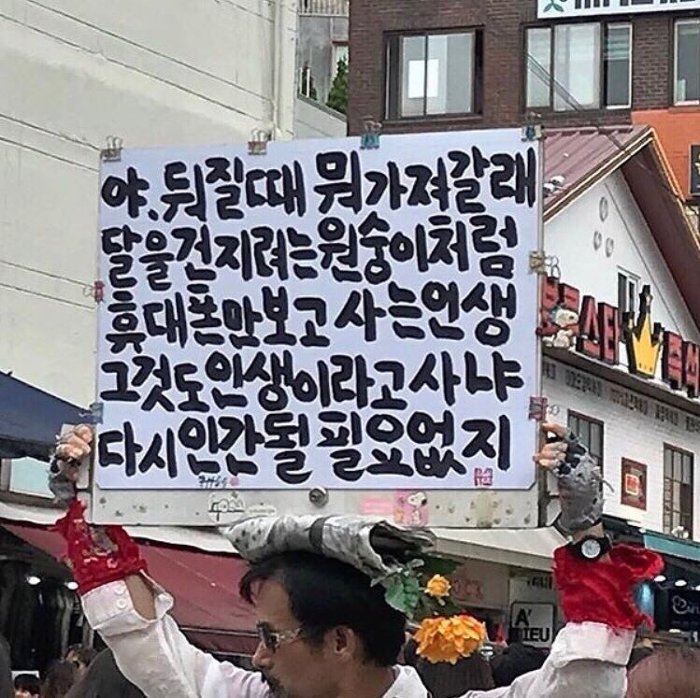 야. 뒤질때 뭐가져갈래
달을건지려는원숭이처럼
휴대폰만보고 사는인생
그것도인생이라고사냐
다시인간될필요없지
스타
A'
RIEU